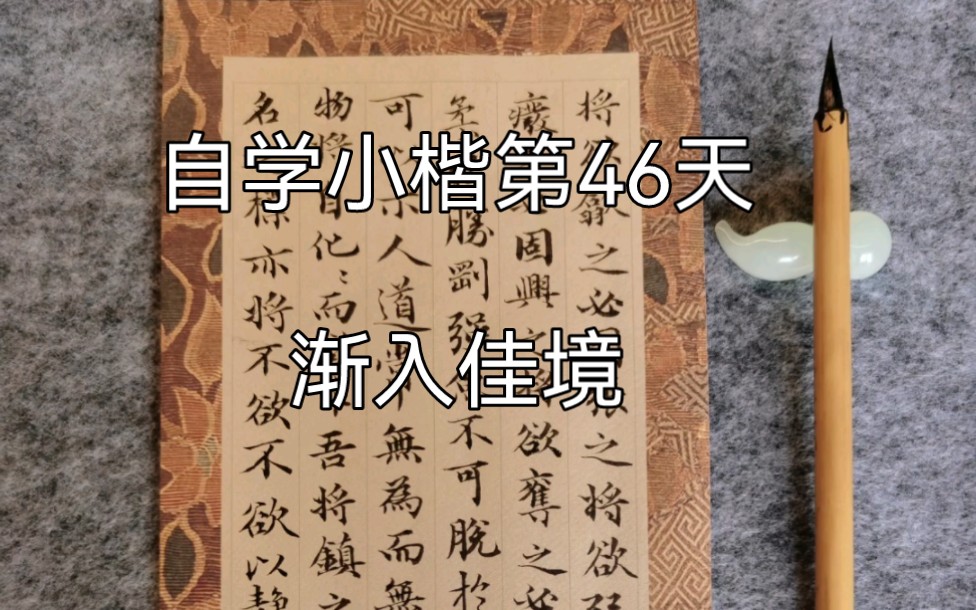 自学小楷第46天
渐入佳境
将欲之必之将欲
癈固興之欲奪之必
柔勝剛强不可脫於
可以示人道常無為而無
物将自化〻而吾将鎮之
名亦将不欲不欲以静